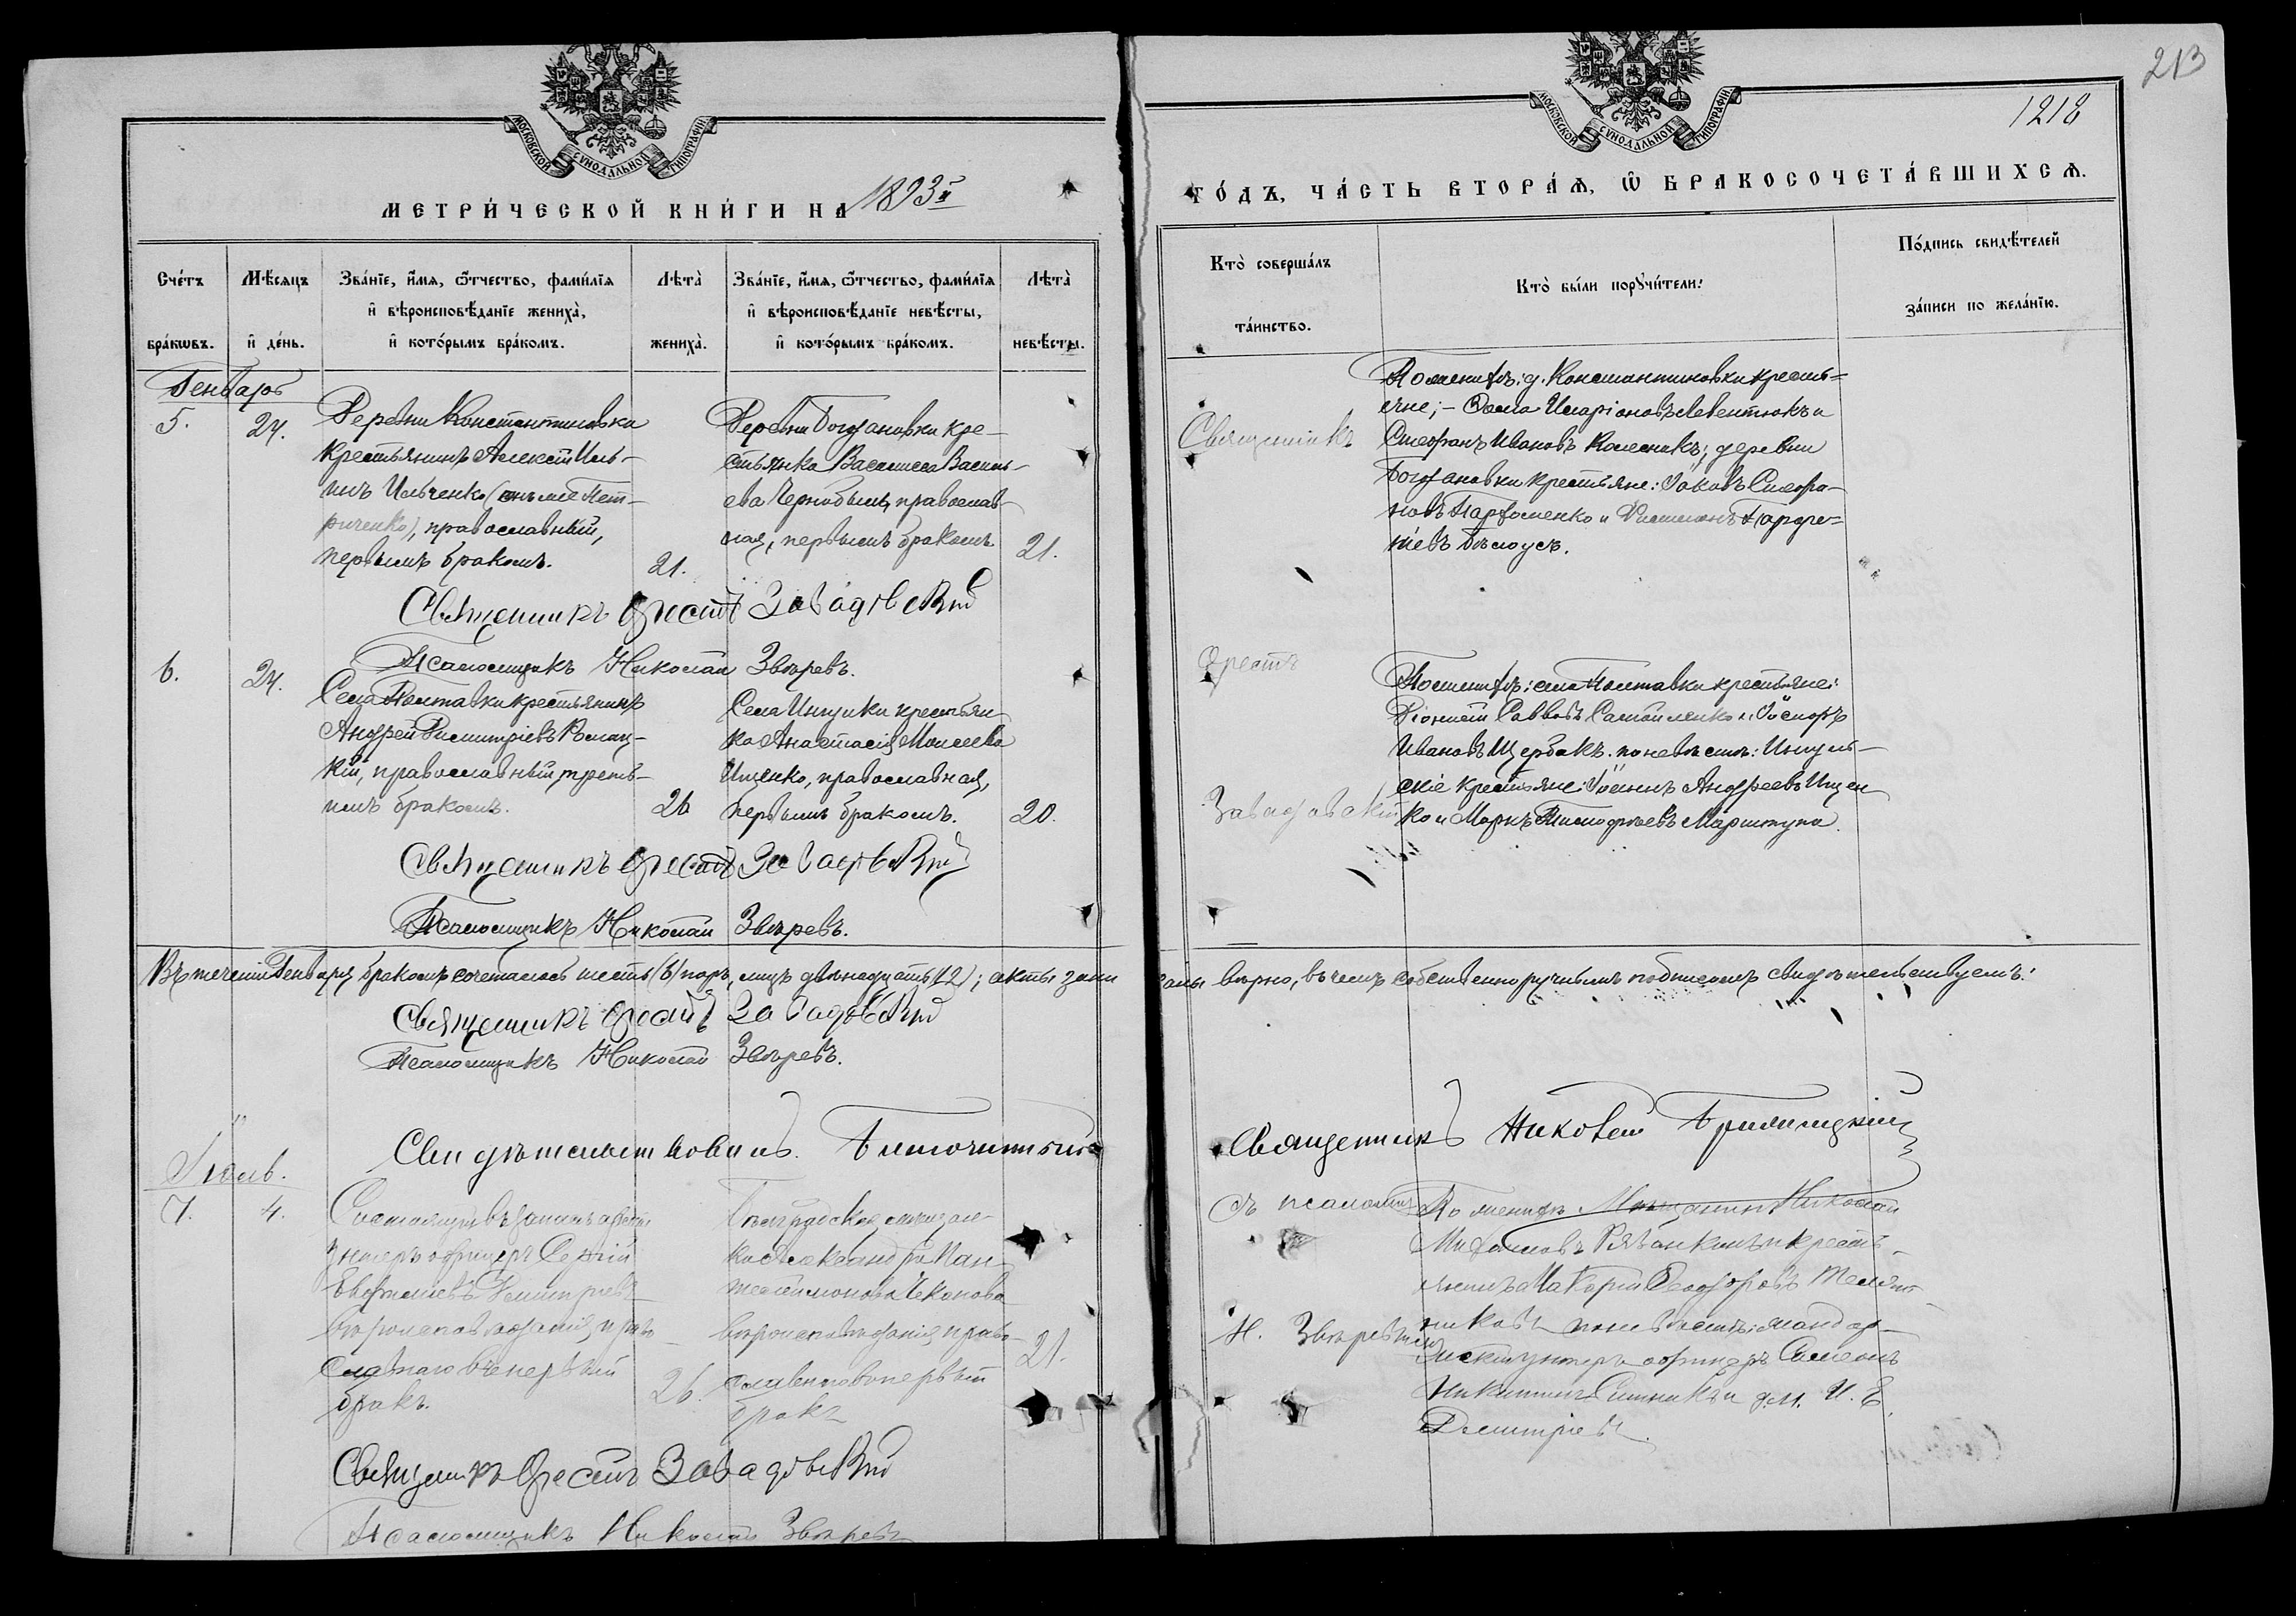 213
1218
МОСКОВСКОЙ СѴНОДАЛЬНОЙ ТИПОГРАФИИ
МОСКОВСКОЙ СѴНОДАЛЬНОЙ ТИПОГРАФИИ
МЕТРИ́ЧЕСКОЙ КНИ́ГИ НА 1893й
ГО́ДЪ, ЧА́СТЬ ВТОРА́Ѧ, Ѡ҆ БРАКОСОЧЕТА́ВШИХСѦ.
Сче́тъ бра́кѡвъ.
Мѣ́сяцъ и҆ де́нь.
Зва́нїе, и҆́мѧ, ѻ҆́тчество, фами́лїѧ и҆ вѣроисповѣ́данїе жениха̀, и҆ кото́рымъ бра́комъ.
Лѣта̀ жениха̀.
Зва́нїе, и҆́мѧ, ѻ҆́тчество, фами́лїѧ и҆ вѣроисповѣ́данїе невѣ́сты, и҆ кото́рымъ бра́комъ.
Лѣта̀ невѣ́сты.
Кто̀ соверша́лъ та́инство.
Кто̀ бы́ли порꙋчи́тели.
По́дпись свидѣ́телей за́писи по жела́нїю.
Генварь
5.
24.
Деревни Константиновки
крестьянинъ Алексѣй Иль-
инъ Ильченко (онъ же Пет-
риченко), православный,
первымъ бракомъ.
21.
Деревни Богдановки кре-
стьянка Василиса Василь-
ева Чернобыль, православ-
ная, первымъ бракомъ
21.
Священникъ
По женихѣ: д. Константиновки кресть-
яне; - Ѳома Иларіоновъ Левентюкъ и
Стефанъ Ивановъ Колесникъ; деревни
Богдановки крестьяне: Іаковъ Симео-
новъ Парфоменко и Филимонъ Парфе-
ніевъ Бѣлоусъ.
Священникъ Орестъ Завадовскій
Псаломщикъ Николай Звѣревъ.
6.
24.
Села Полтавки крестьянинъ
Андрей Димитріевъ
православный, треть-
имъ бракомъ.
26
Села Ингулки крестьян-
ка Анастасія Моисеева
Ищенко, православная,
первымъ бракомъ.
20.
Орестъ
Завадовскій
По женихѣ: села Полтавки крестьяне:
Діонисій Саввовъ Самойленко и Іосифъ
Ивановъ Щербакъ. по невѣстѣ: Ингуль-
скіе крестьяне: Іоаннъ Андреевъ Ищен-
ко и Маркъ Тимофеевъ
Священникъ Орестъ Завадовскій
Псаломщикъ Николай Звѣревъ.
Въ теченіи Генваря бракомъ сочеталось шесть (6) паръ, лицъ двѣнадцать (12); акты записаны вѣрно, въ чемъ собственноручнымъ подписомъ свидѣтельствуемъ:
Священникъ Орестъ Завадовскій
Псаломщикъ Николай Звѣревъ.
Свидѣтельствовалъ Благочинный Священникъ
Іюль.
7.
4.
Состоящій въ запасѣ арміи
унтеръ офицеръ Сергій
Евфиміевъ Димитріевъ
вѣроисповѣданія право-
славнаго въ первый
бракъ.
26.
мѣщан-
ка Александра Пан-
телеимонова Чеканова
вѣроисповѣданія право-
славнаго въ первый
бракъ
21.
съ псаломщ.
Н. Звѣревымъ
По женихѣ Мѣщанинъ Николай
Михайловъ и кресть-
янинъ Макарій Ѳеодоровъ
по невѣстѣ:
унтеръ офицеръ Симеонъ
Никитинъ и д.м. И. Е.
Димитріевъ.
Священникъ Орестъ Завадовскій
Псаломщикъ Николай Звѣревъ